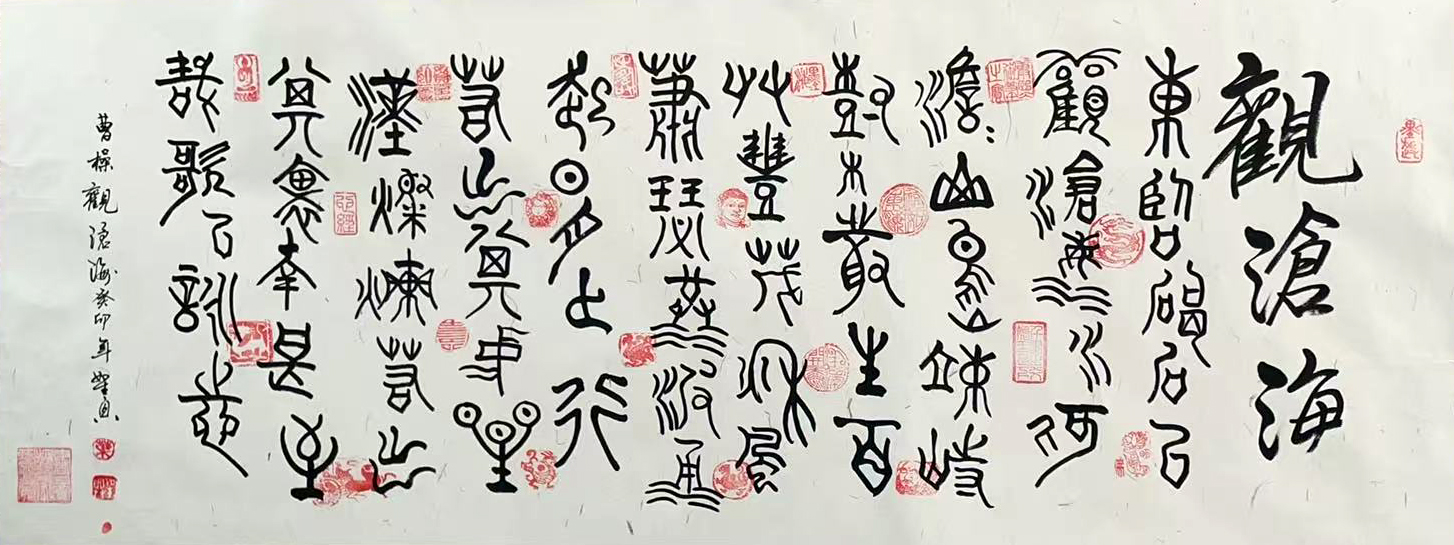 觀滄海
東臨碣石㠯
觀滄海水何
澹〻山島竦峙
尌木叢生百
艸豐茂秋風
蕭瑟洪波涌
起日月之行
若出其中星
漢燦爛若出
其裏幸甚至
哉歌㠯詠志
曹操觀滄海癸卯年